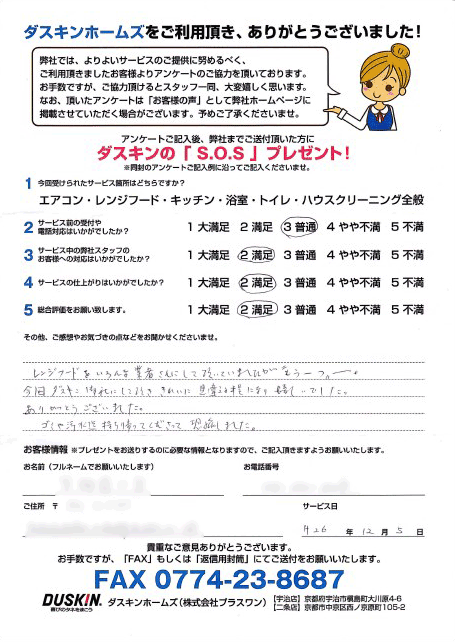 ダスキンホームズをご利用頂き、ありがとうございました！
弊社では、よりよいサービスのご提供に努めるべく、
ご利用頂きましたお客様よりアンケートのご協力を頂いております。
お手数ですが、ご協力頂けるとスタッフ一同、大変嬉しく思います。
なお、頂いたアンケートは「お客様の声」として弊社ホームページに
掲載させていただく場合がございます。予めご了承くださいませ。
アンケートご記入後、弊社までご送付頂いた方に
ダスキンの「 S.O.S 」プレゼント！
※同封のアンケートご記入例に沿ってご記入くださいませ。
1 今回受けられたサービス箇所はどちらですか？
エアコン・レンジフード・キッチン・浴室・トイレ・ハウスクリーニング全般
2 サービス前の受付や
電話対応はいかがでしたか？ 1 大満足 2 満足 3 普通 4 やや不満 5 不満
3 サービス中の弊社スタッフの
お客様への対応はいかがでしたか？ 1 大満足 2 満足 3 普通 4 やや不満 5 不満
4 サービスの仕上がりはいかがでしたか？ 1 大満足 2 満足 3 普通 4 やや不満 5 不満
5 総合評価をお願い致します。 1 大満足 2 満足 3 普通 4 やや不満 5 不満
その他、ご感想やお気づきの点などをお聞かせくださいませ。
レンジフードをいろんな業者さんにして頂いていましたが もう一つ
今回ダスキン きれいに
ありがとうございました。
ゴミや汚水迄持ち帰ってくださって 感謝しました。
お客様情報 ※プレゼントをお送りするのに必要な情報となりますので、ご記入頂けますようお願いいたします。
お名前（フルネームでお願いいたします） お電話番号
ご住所 〒 サービス日
H26 年 12 月 5 日
貴重なご意見ありがとうございます。
お手数ですが、「FAX」もしくは「返信用封筒」にてご送付をお願いいたします。
FAX 0774-23-8687
DUSKIN. 喜びのタネをまこう ダスキンホームズ（株式会社プラスワン） 【宇治店】京都府宇治市槇島町大川原4-6
【二条店】京都市中京区西ノ京原町105-2